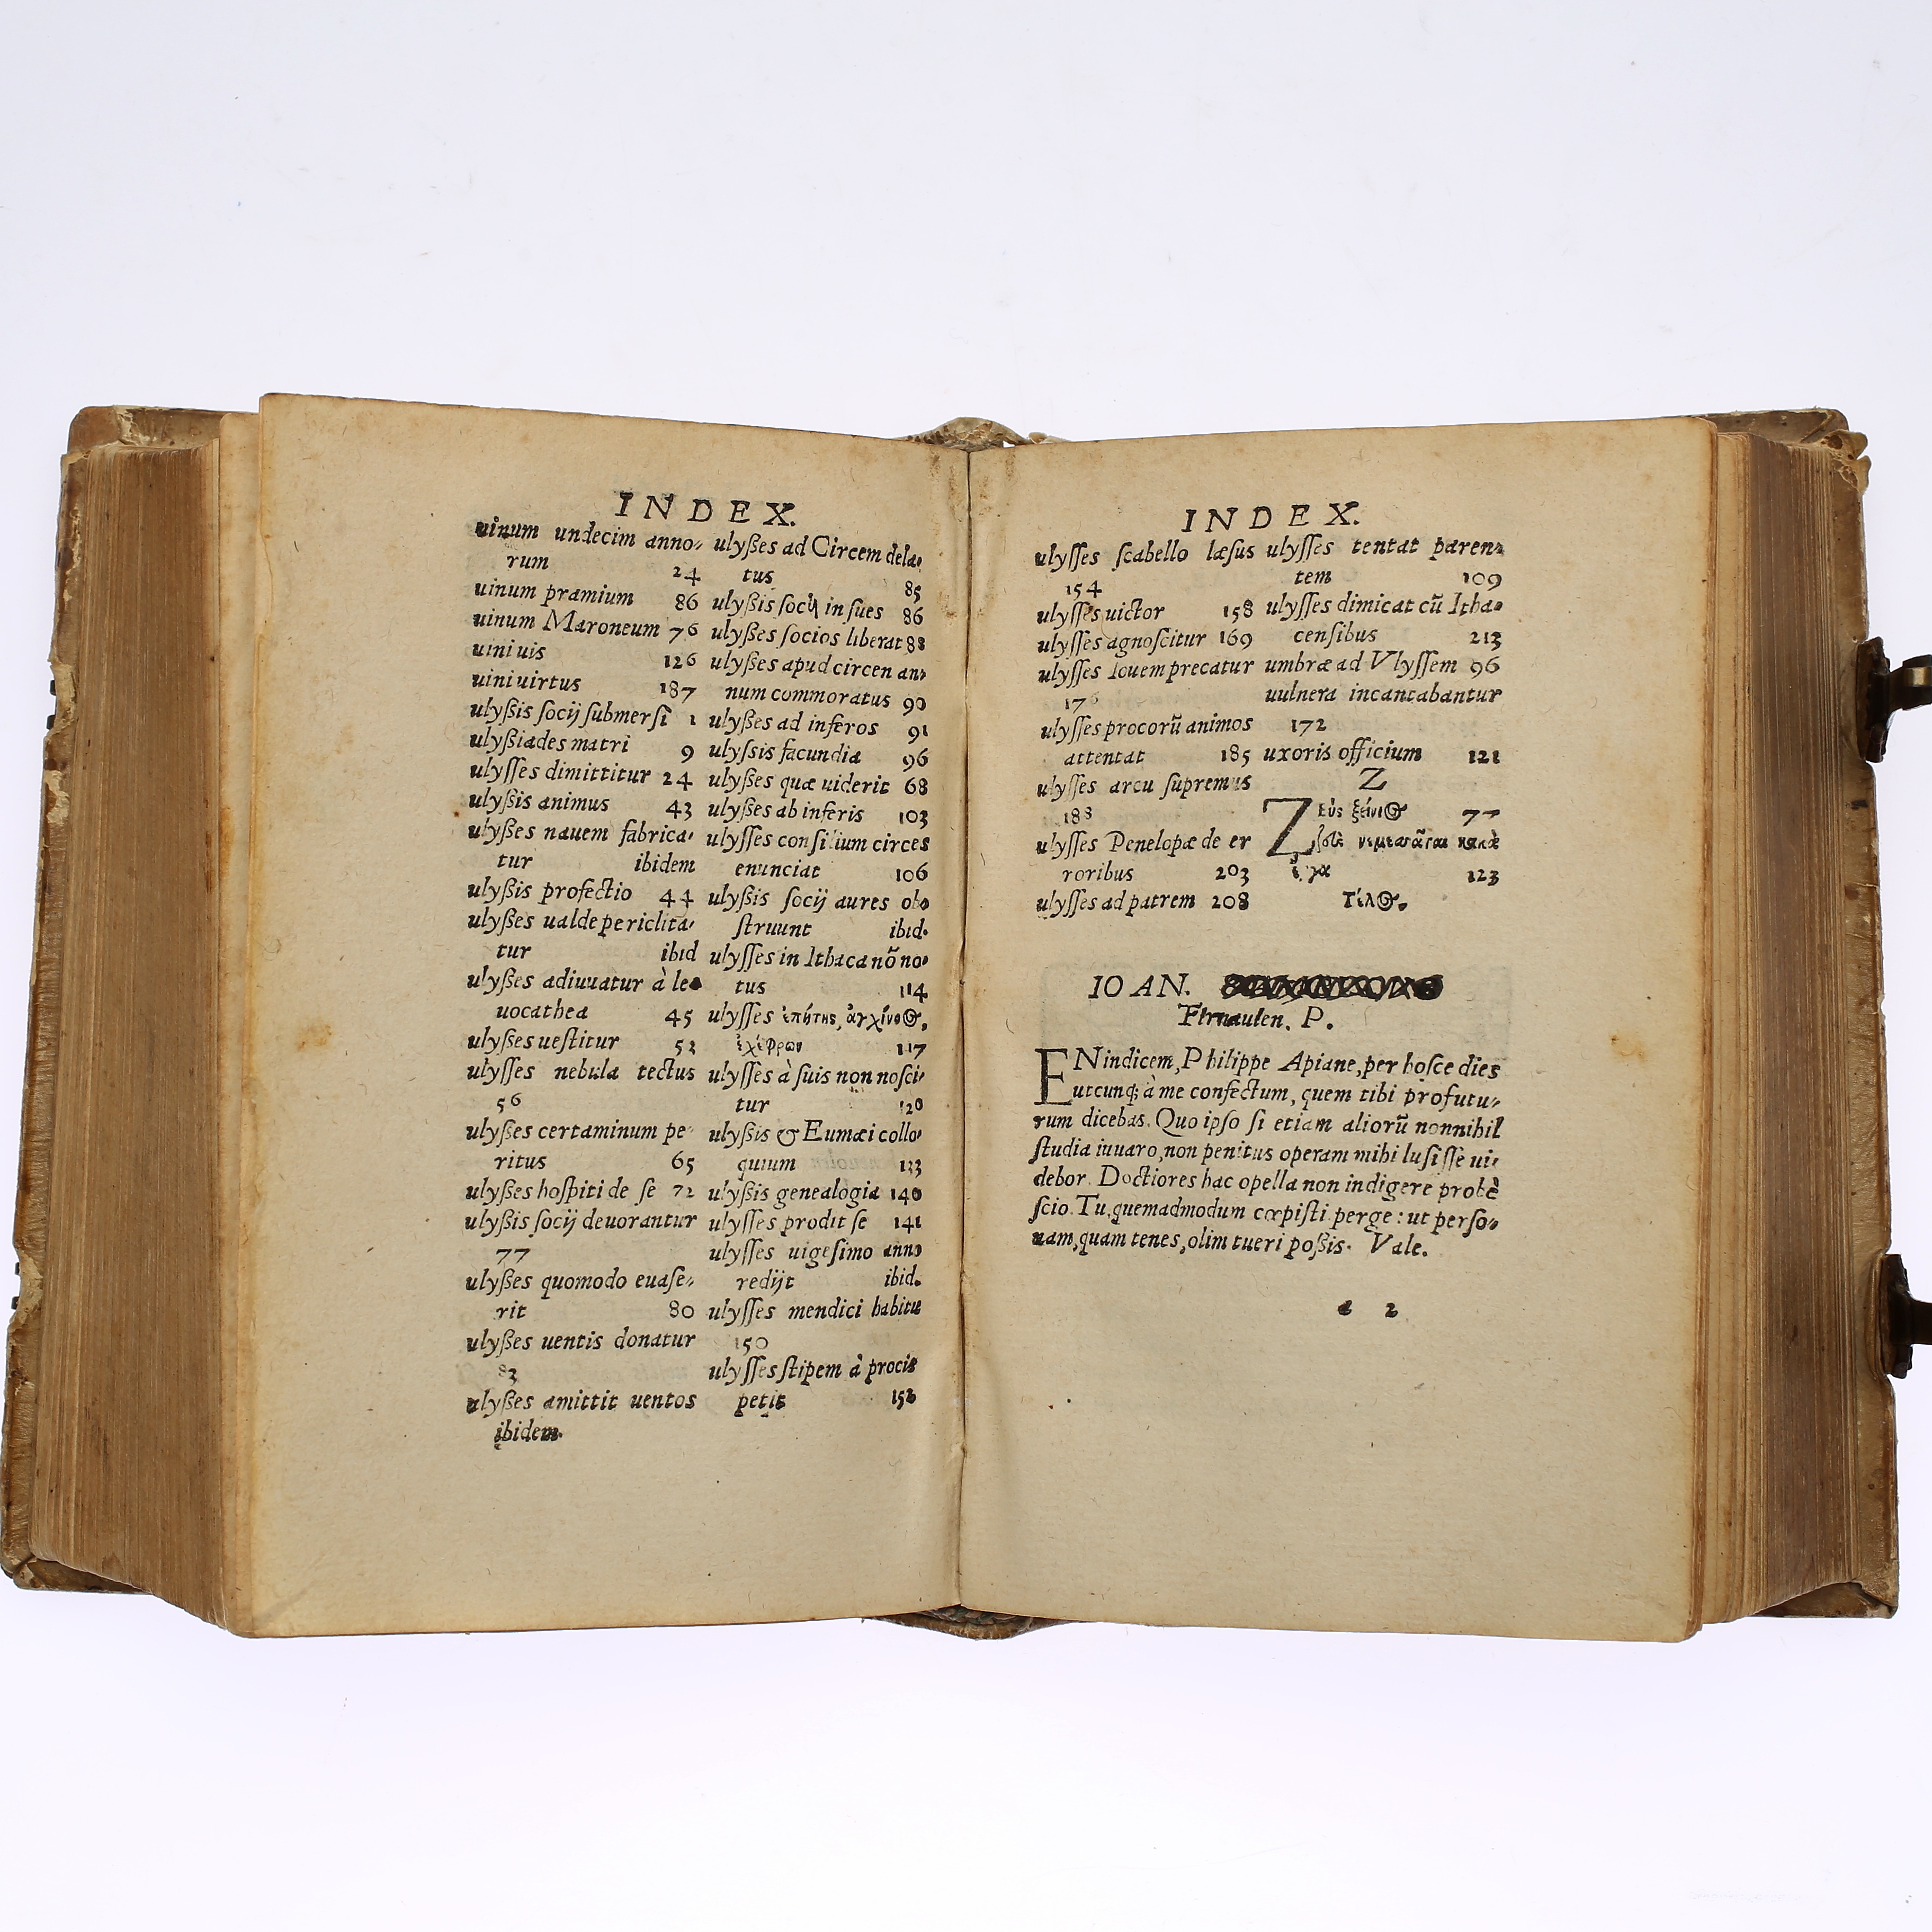 INDEX.
uinum undecim anno-
rum 24
uinum pramium 86
uinum Maroneum 76
uini uis 126
uini uirtus 187
ulyßis socij submersi 1
ulyßiades matri 9
ulysses dimittitur 24
ulyßis animus 43
ulyßes nauem fabrica-
tur ibidem
ulyßis profectio 44
ulyßes ualde periclita-
tur ibid
ulyßes adiuuatur à le
uocathea 45
ulyßes uestitur 52
ulysses nebula tectus
56
ulyßes certaminum pe-
ritus 65
ulyßes hospiti de se 72
ulyßis socij deuorantur
77
ulyßes quomodo euase-
rit 80
ulyßes uentis donatur
83
ulyßes amittit uentos
ibidem.
ulyßes ad Circem dela-
tus 85
ulyßis socij in sues 86
ulyßes socios liberat 88
ulyßes apud circen an-
num commoratus 90
ulyßes ad inferos 91
ulyssis facundia 96
ulyßes quæ uiderit 68
ulyßes ab inferis 103
ulysses consilium circes
enunciat 106
ulyßis socij aures ob-
struunt ibid.
ulysses in Ithaca nõ no-
tus 114
ulysses ἐπήτης, ἀγχίνο⸺ς,
ἐχέφρων 117
ulysses à suis non nosci-
tur 120
ulyßis & Eumæi collo-
quium 133
ulyßis genealogia 140
ulysses prodit se 141
ulysses uigesimo anno
redijt ibid.
ulysses mendici habitu
150
ulysses stipem à procis
petit 152
INDEX.
ulysses scabello læsus
154
ulysses uictor 158
ulysses agnoscitur 169
ulysses Iouem precatur
176
ulysses procorũ animos
attentat 185
ulysses arcu supremus
188
ulysses Penelopæ de er
roribus 203
ulysses ad patrem 208
ulysses tentat paren-
tem 109
ulysses dimicat cũ Itha-
censibus 213
umbræ ad Vlyssem 96
uulnera incantabantur
172
uxoris officium 121
Z
Ζεὺς ξείνιος 77
νεμεσᾶται κακὰ
ἔργα 123
Τέλος.
IOAN.
P.
EN indicem, Philippe Apiane, per hosce dies
utcunq; à me confectum, quem tibi profutu-
rum dicebas. Quo ipso si etiam aliorũ nonnihil
studia iuuaro, non penitus operam mihi lusisse ui-
debor. Doctiores hac opella non indigere probè
scio. Tu, quemadmodum cœpisti perge: ut perso-
nam, quam tenes, olim tueri poßis. Vale.
a 2